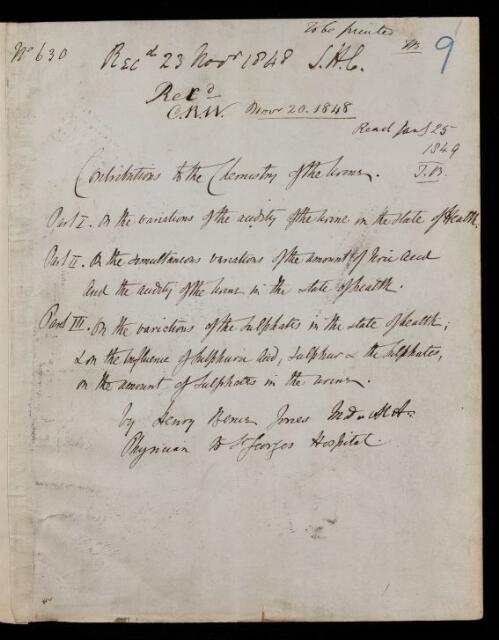 To be printed
No 630
Recd 23 Novr 1848 S.H.C.
9
Recd
C.R.W. Novr 20. 1848
Read Jany 25
1849
Contributions to the Chemistry of the Urine.
Part I. On the variations of the acidity of the Urine in the state of Health.
Part II. On the simultaneous variations of the amount of Uric Acid
and the acidity of the Urine in the state of health.
Part III. On the variations of the Sulphates in the state of health;
& on the Influence of Sulphuric Acid, Sulphur & the Sulphates,
on the amount of Sulphates in the urine.
by Henry Bence Jones M.D. M.A.
Physician to St Georges Hospital.